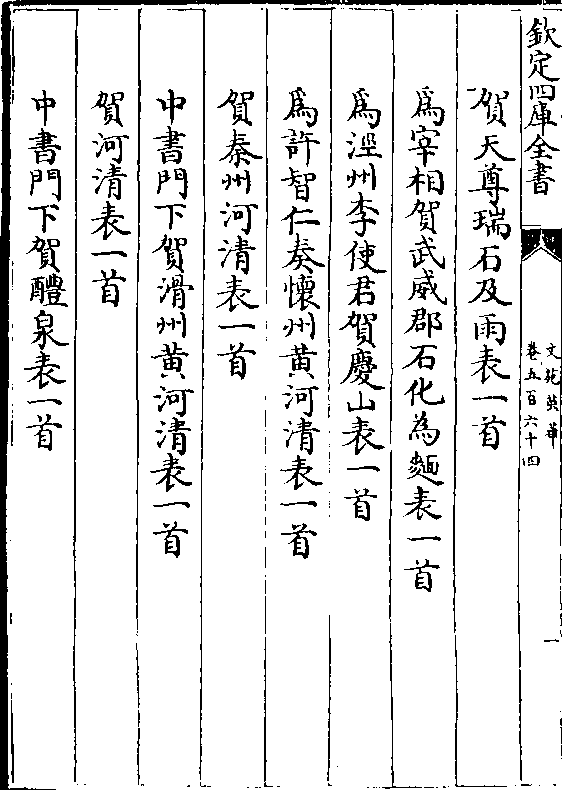 欽定四庫全書
文苑英華
卷五百六十四
一
賀天尊瑞石及雨表一首
爲宰相賀武威郡石化為麵表一首
爲涇州李使君賀慶山表一首
爲許智仁奏懷州黃河清表一首
賀秦州河清表一首
中書門下賀滑州黃河清表一首
賀河清表一首
中書門下賀醴泉表一首